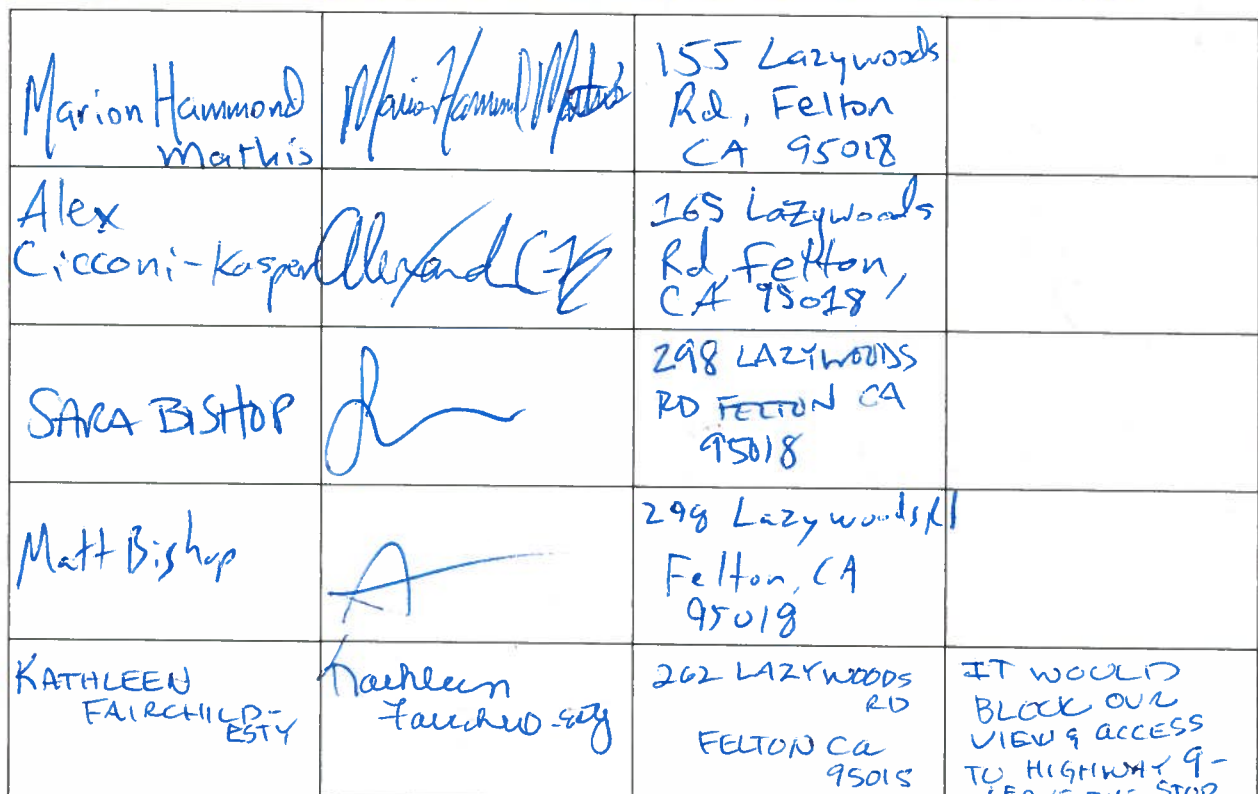 Marion Hammond
Mathis
Mario Hammond Mathis
155 Lazywoods
Rd, Felton
CA 95018
Alex
Cicconi-Kasper
Alexand C-K
165 Lazywoods
Rd, Felton,
CA 95018
SARA BISHOP
298 LAZYWOODS
RD FELTON CA
95018
Matt Bishop
298 Lazywoods Rd
Felton, CA
95018
KATHLEEN
FAIRCHILD-
ESTY
Kathleen
Fairchild-Esty
262 LAZYWOODS
RD
FELTON Ca
95018
IT WOULD
BLOCK OUR
VIEW & ACCESS
TO HIGHWAY 9-
STOP